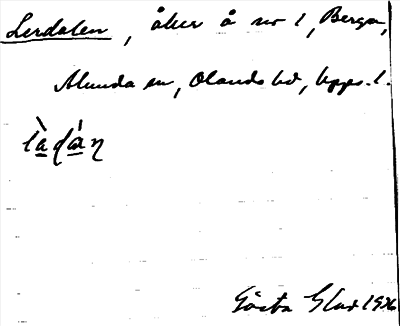 Lerdalen, åker å nr 1, Berga,
Alunda sn, Olands hd, Upps. l.
Gösta 1936